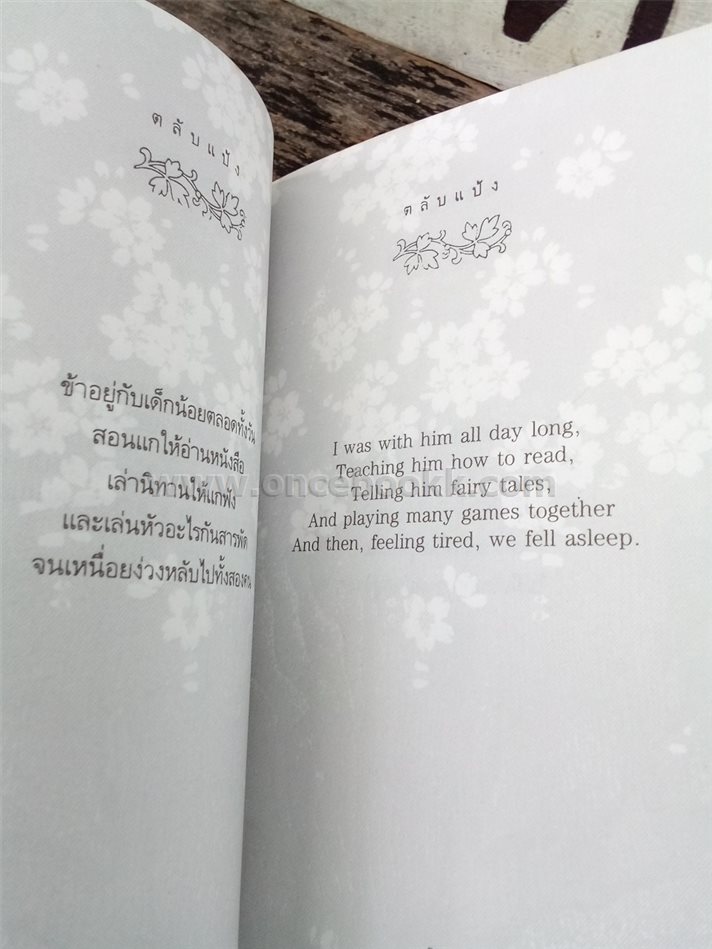 ตลับแป้ง
ข้าอยู่กับเด็กน้อยตลอดทั้งวัน
สอนแกให้อ่านหนังสือ
เล่านิทานให้แกฟัง
และเล่นหัวอะไรกันสารพัด
จนเหนื่อยง่วงหลับไปทั้งสองคน
ตลับแป้ง
I was with him all day long,
Teaching him how to read,
Telling him fairy tales,
And playing many games together
And then, feeling tired, we fell asleep.
www.oncebookk.com